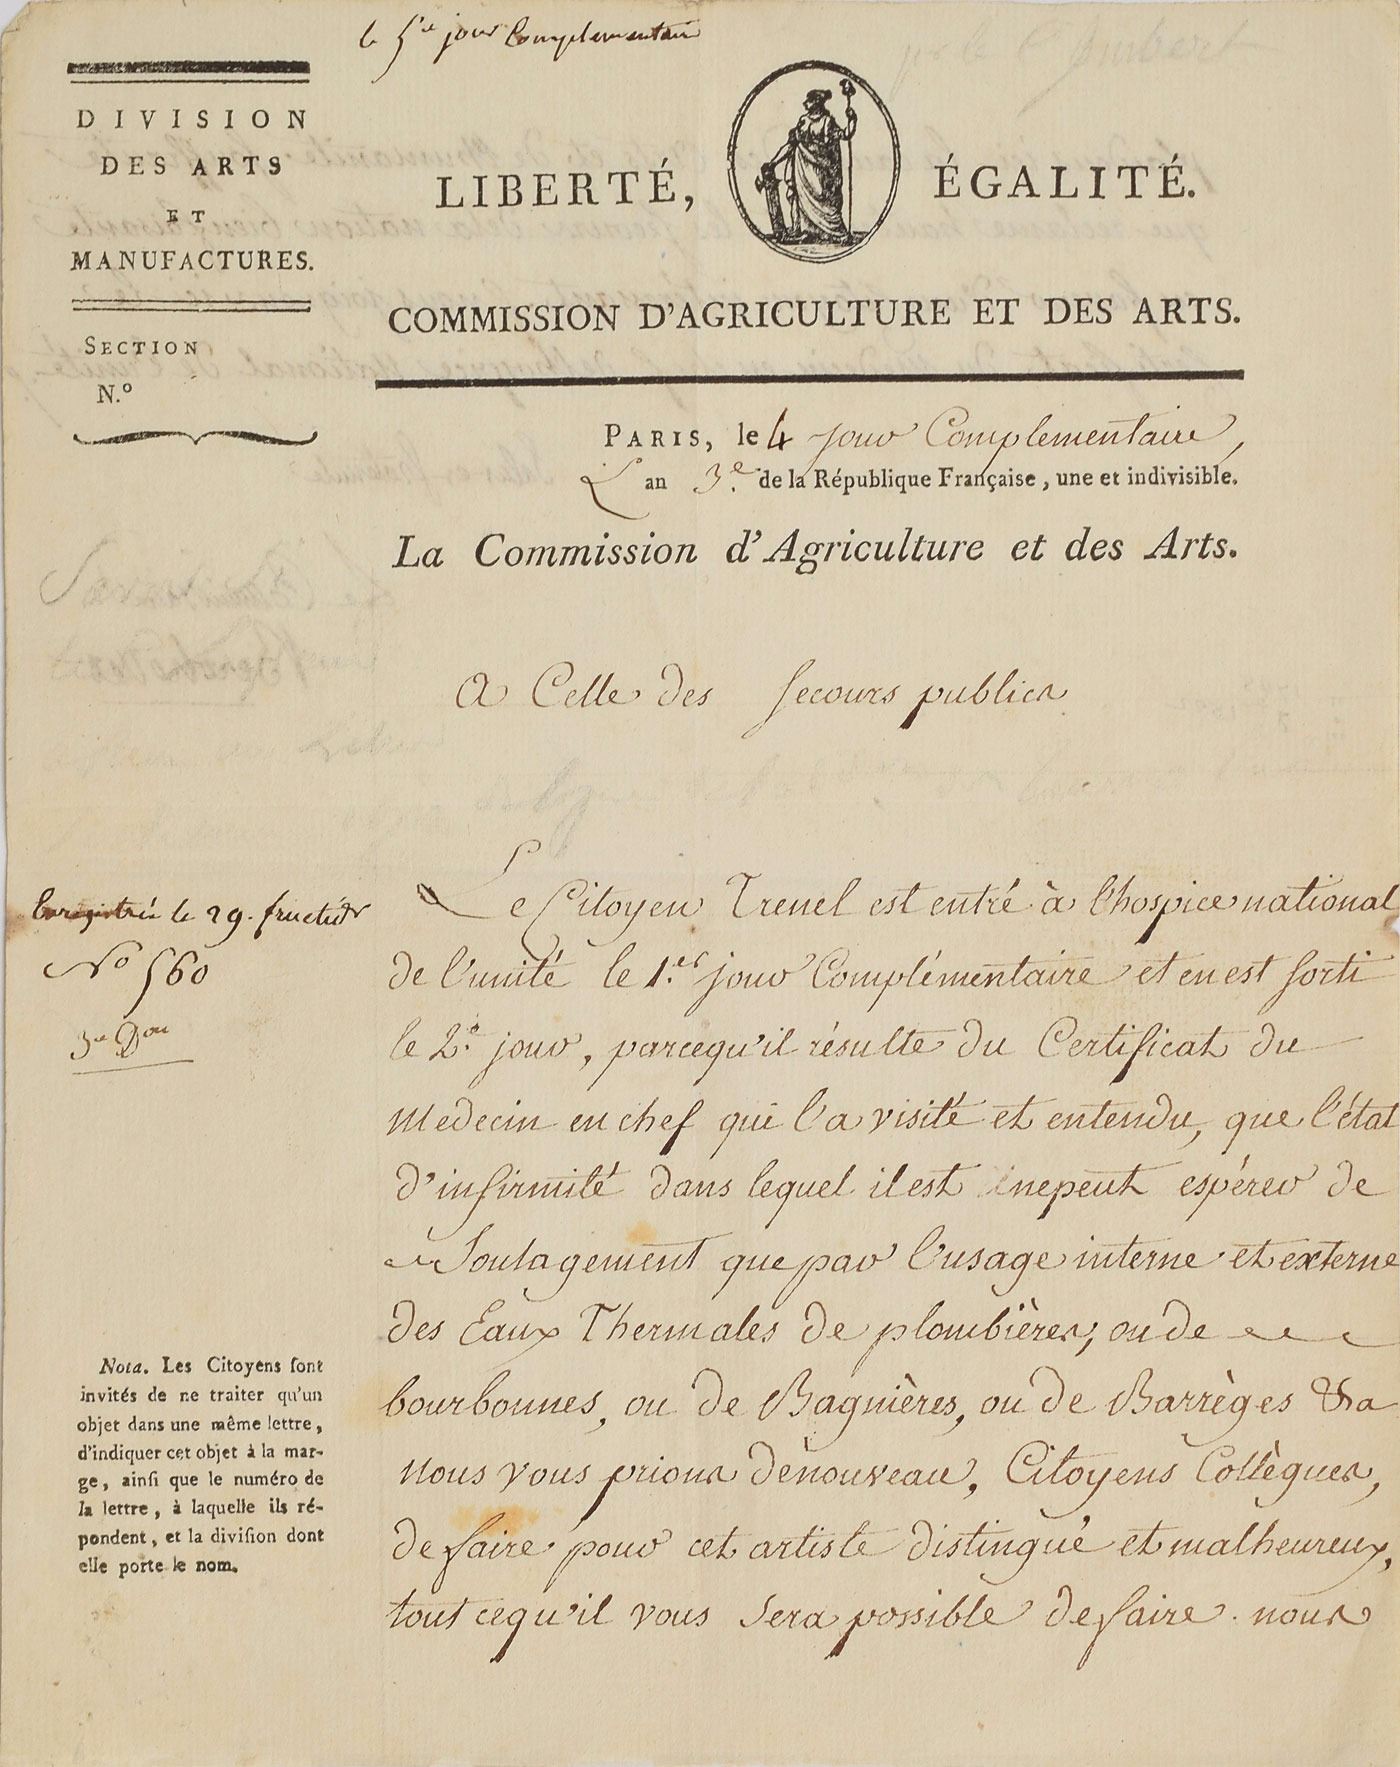 le 5.e jour Complementaire
DIVISION
DES ARTS
ET
MANUFACTURES.
SECTION
N.º
LIBERTÉ, ÉGALITÉ.
COMMISSION D'AGRICULTURE ET DES ARTS.
PARIS, le 4 jour Complementaire,
L'an 3.e de la République Française, une et indivisible.
La Commission d'Agriculture et des Arts.
A Celle des Secours publics
Enregistrée le 29. fructidr
Nº 560
3e Don
Le Citoyen Trenel est entré à l'hospice national
de l'unité le 1.er jour Complémentaire et en est sorti
le 2.e jour, parcequ'il résulte du Certificat du
Medecin en chef qui l'a visité et entendu, que l'état
d'infirmité dans lequel il est ne peut espérer de
Soulagement que par l'usage interne et externe
des Eaux Thermales de plombières, ou de
bourbonnes, ou de Bagnières, ou de Barrèges &a
nous vous prions dénouveau, Citoyens Collègues,
de faire pour cet artiste distingué et malheureux,
tout cequ'il vous Sera possible de faire. nous
Nota. Les Citoyens ſont
invités de ne traiter qu'un
objet dans une même lettre,
d'indiquer cet objet à la mar-
ge, ainſi que le numéro de
la lettre, à laquelle ils ré-
pondent, et la diviſion dont
elle porte le nom.